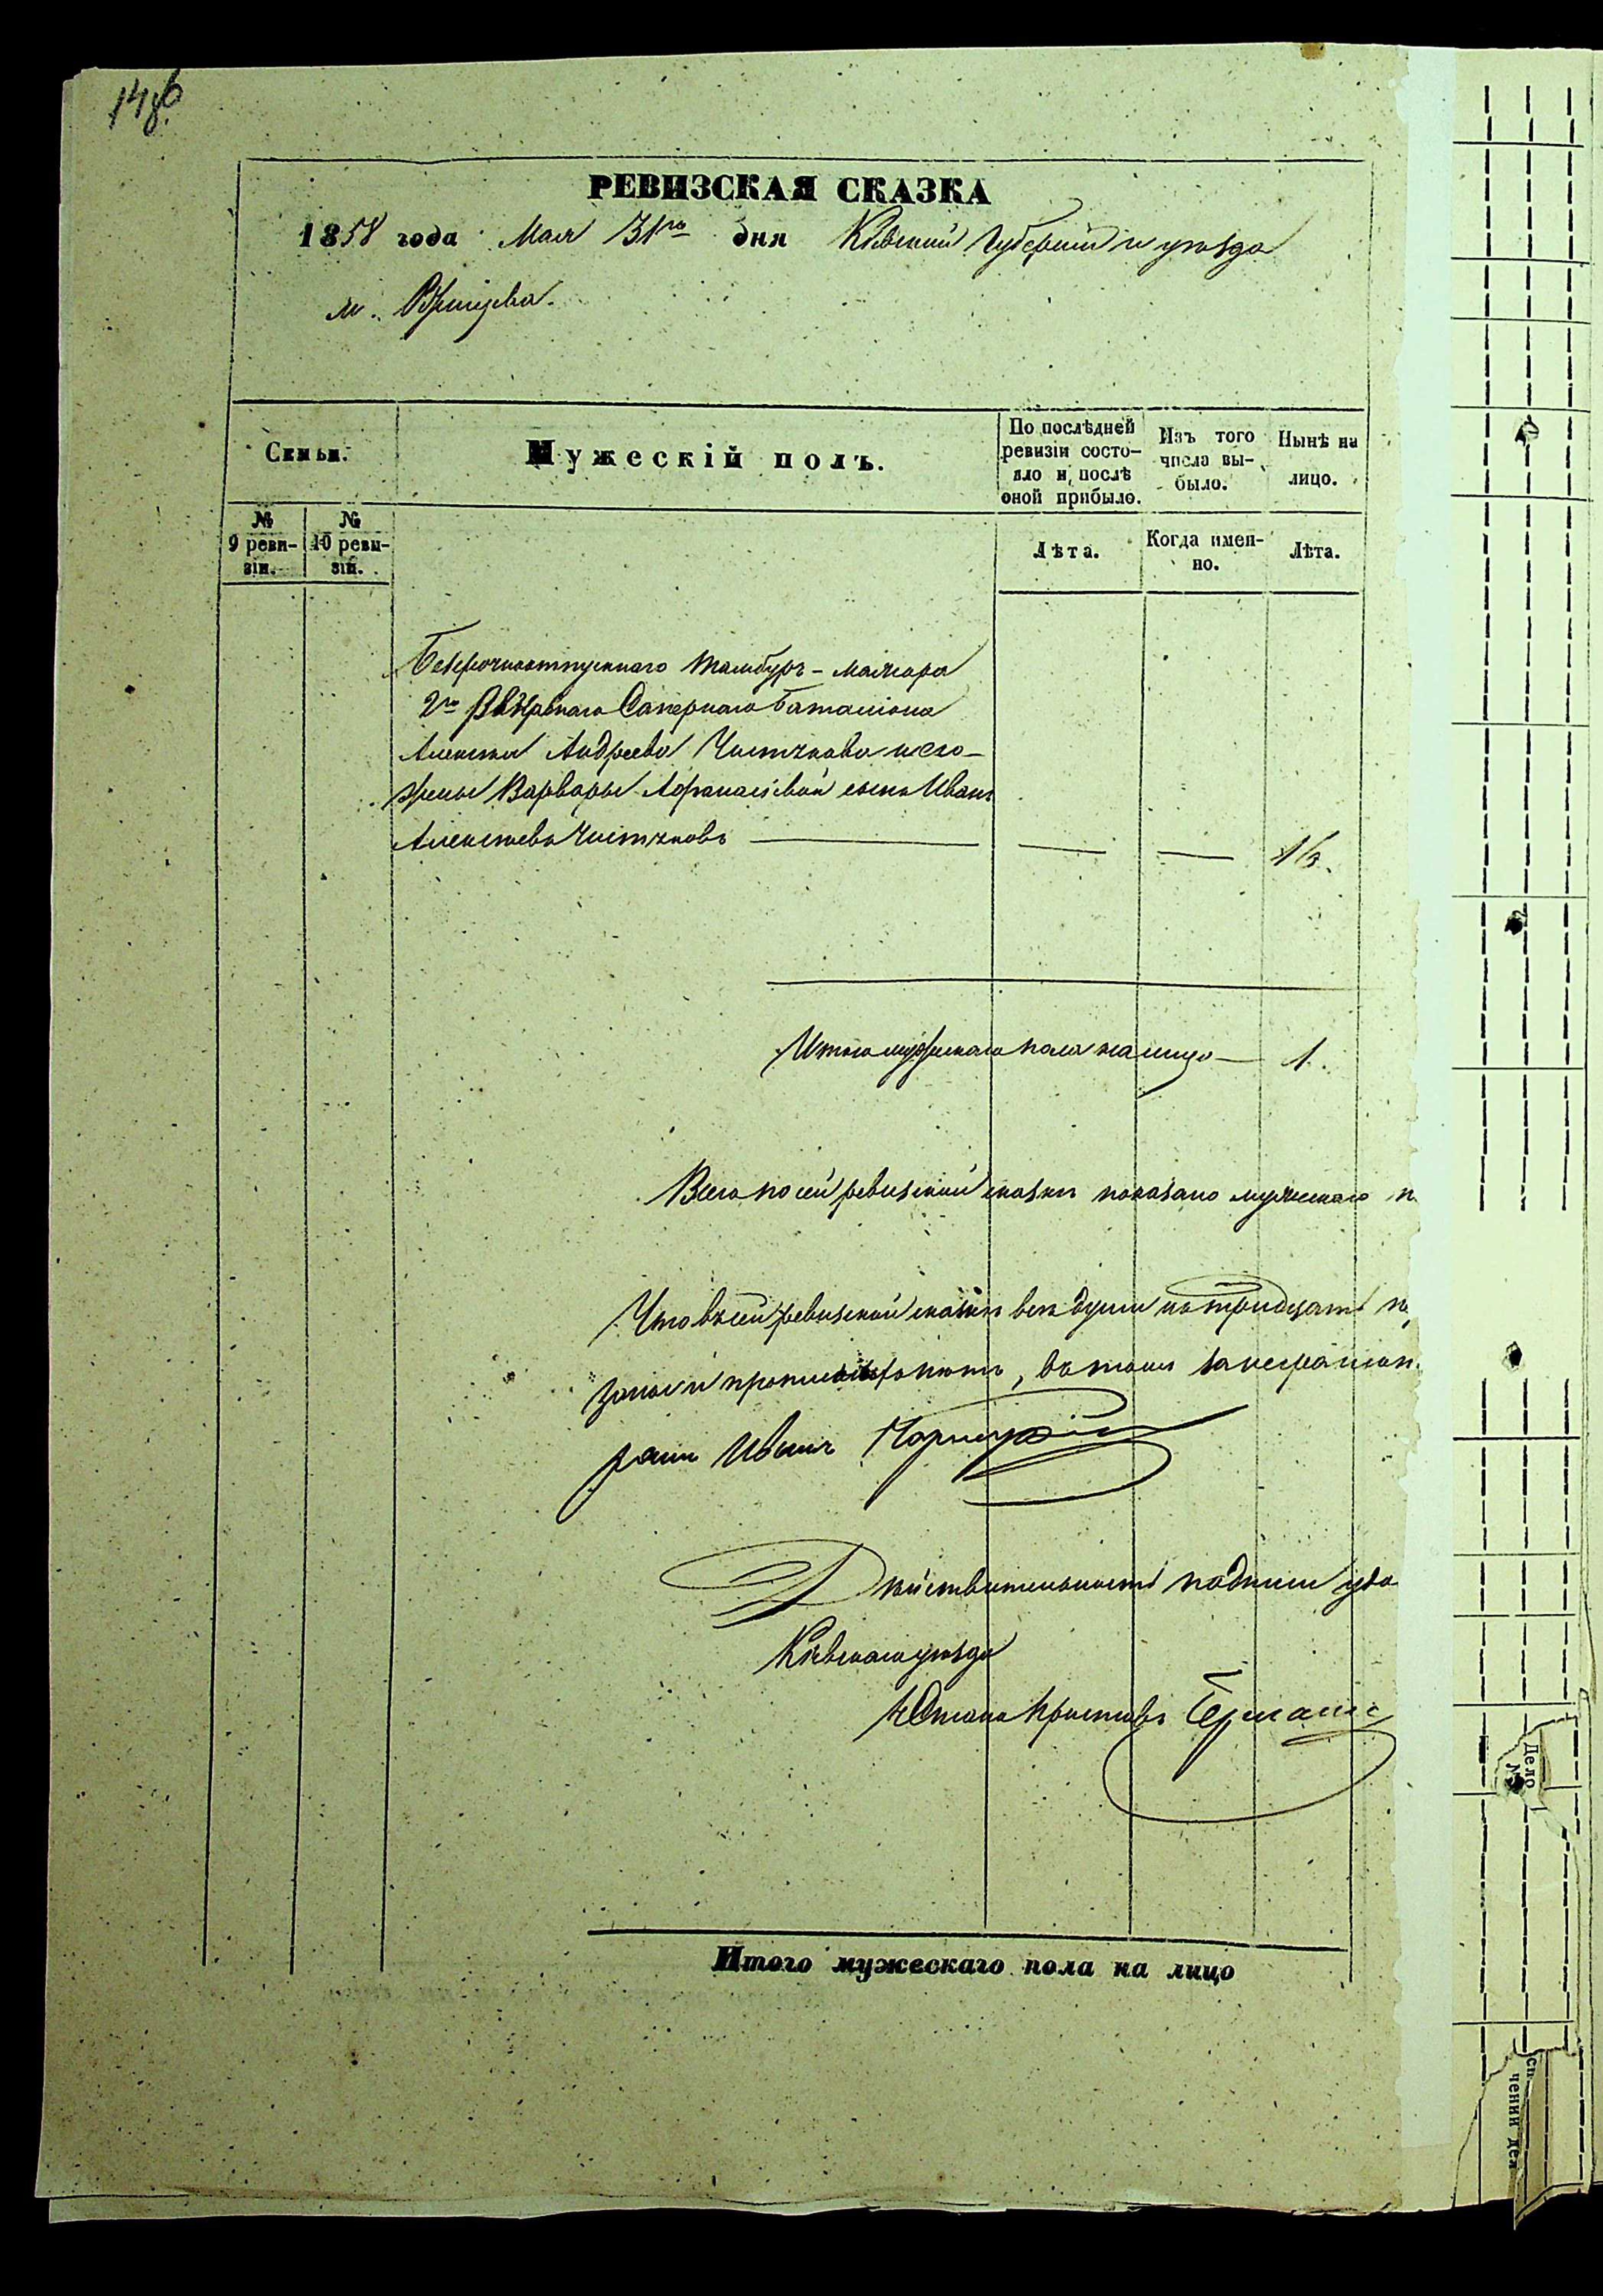 148
РЕВИЗСКАЯ СКАЗКА
1858 года Мая 31го дня Кіевской Губерніи и уѣзда
м. Ержищева.
Семьи.
Мужескій полъ.
По послѣдней ревизіи состо-
яло и послѣ оной прибыло.
Изъ того числа вы-
было.
Нынѣ на лицо.
№ 9 реви-
зіи.
№ 10 реви-
зіи.
Лѣта.
Когда имен-
но.
Лѣта.
Безсрочноотпускнаго Тамбуръ-Мажора
2го Резервнаго Сапернаго Баталіона
Алексея Андреева Чистякова и его
жены Варвары Афанасіевой сынъ Иванъ
Алексѣевъ Чистяковъ
Итого мужескаго пола налицо — 1.
Всего по сей ревизской сказкѣ показано мужескаго п
Что въ сей ревизской сказкѣ всѣ души по тридцать
въ томъ
Иванъ
Дѣйствительность подписи удо
Кіевскаго уѣзда
Стана Приставъ Германъ
Итого мужескаго пола на лицо
Дело
№
чении дел